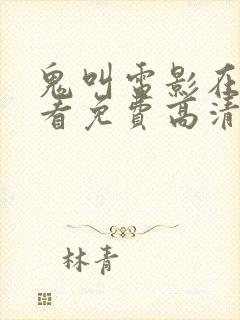 鬼叫雷影在
看免费高清
林青